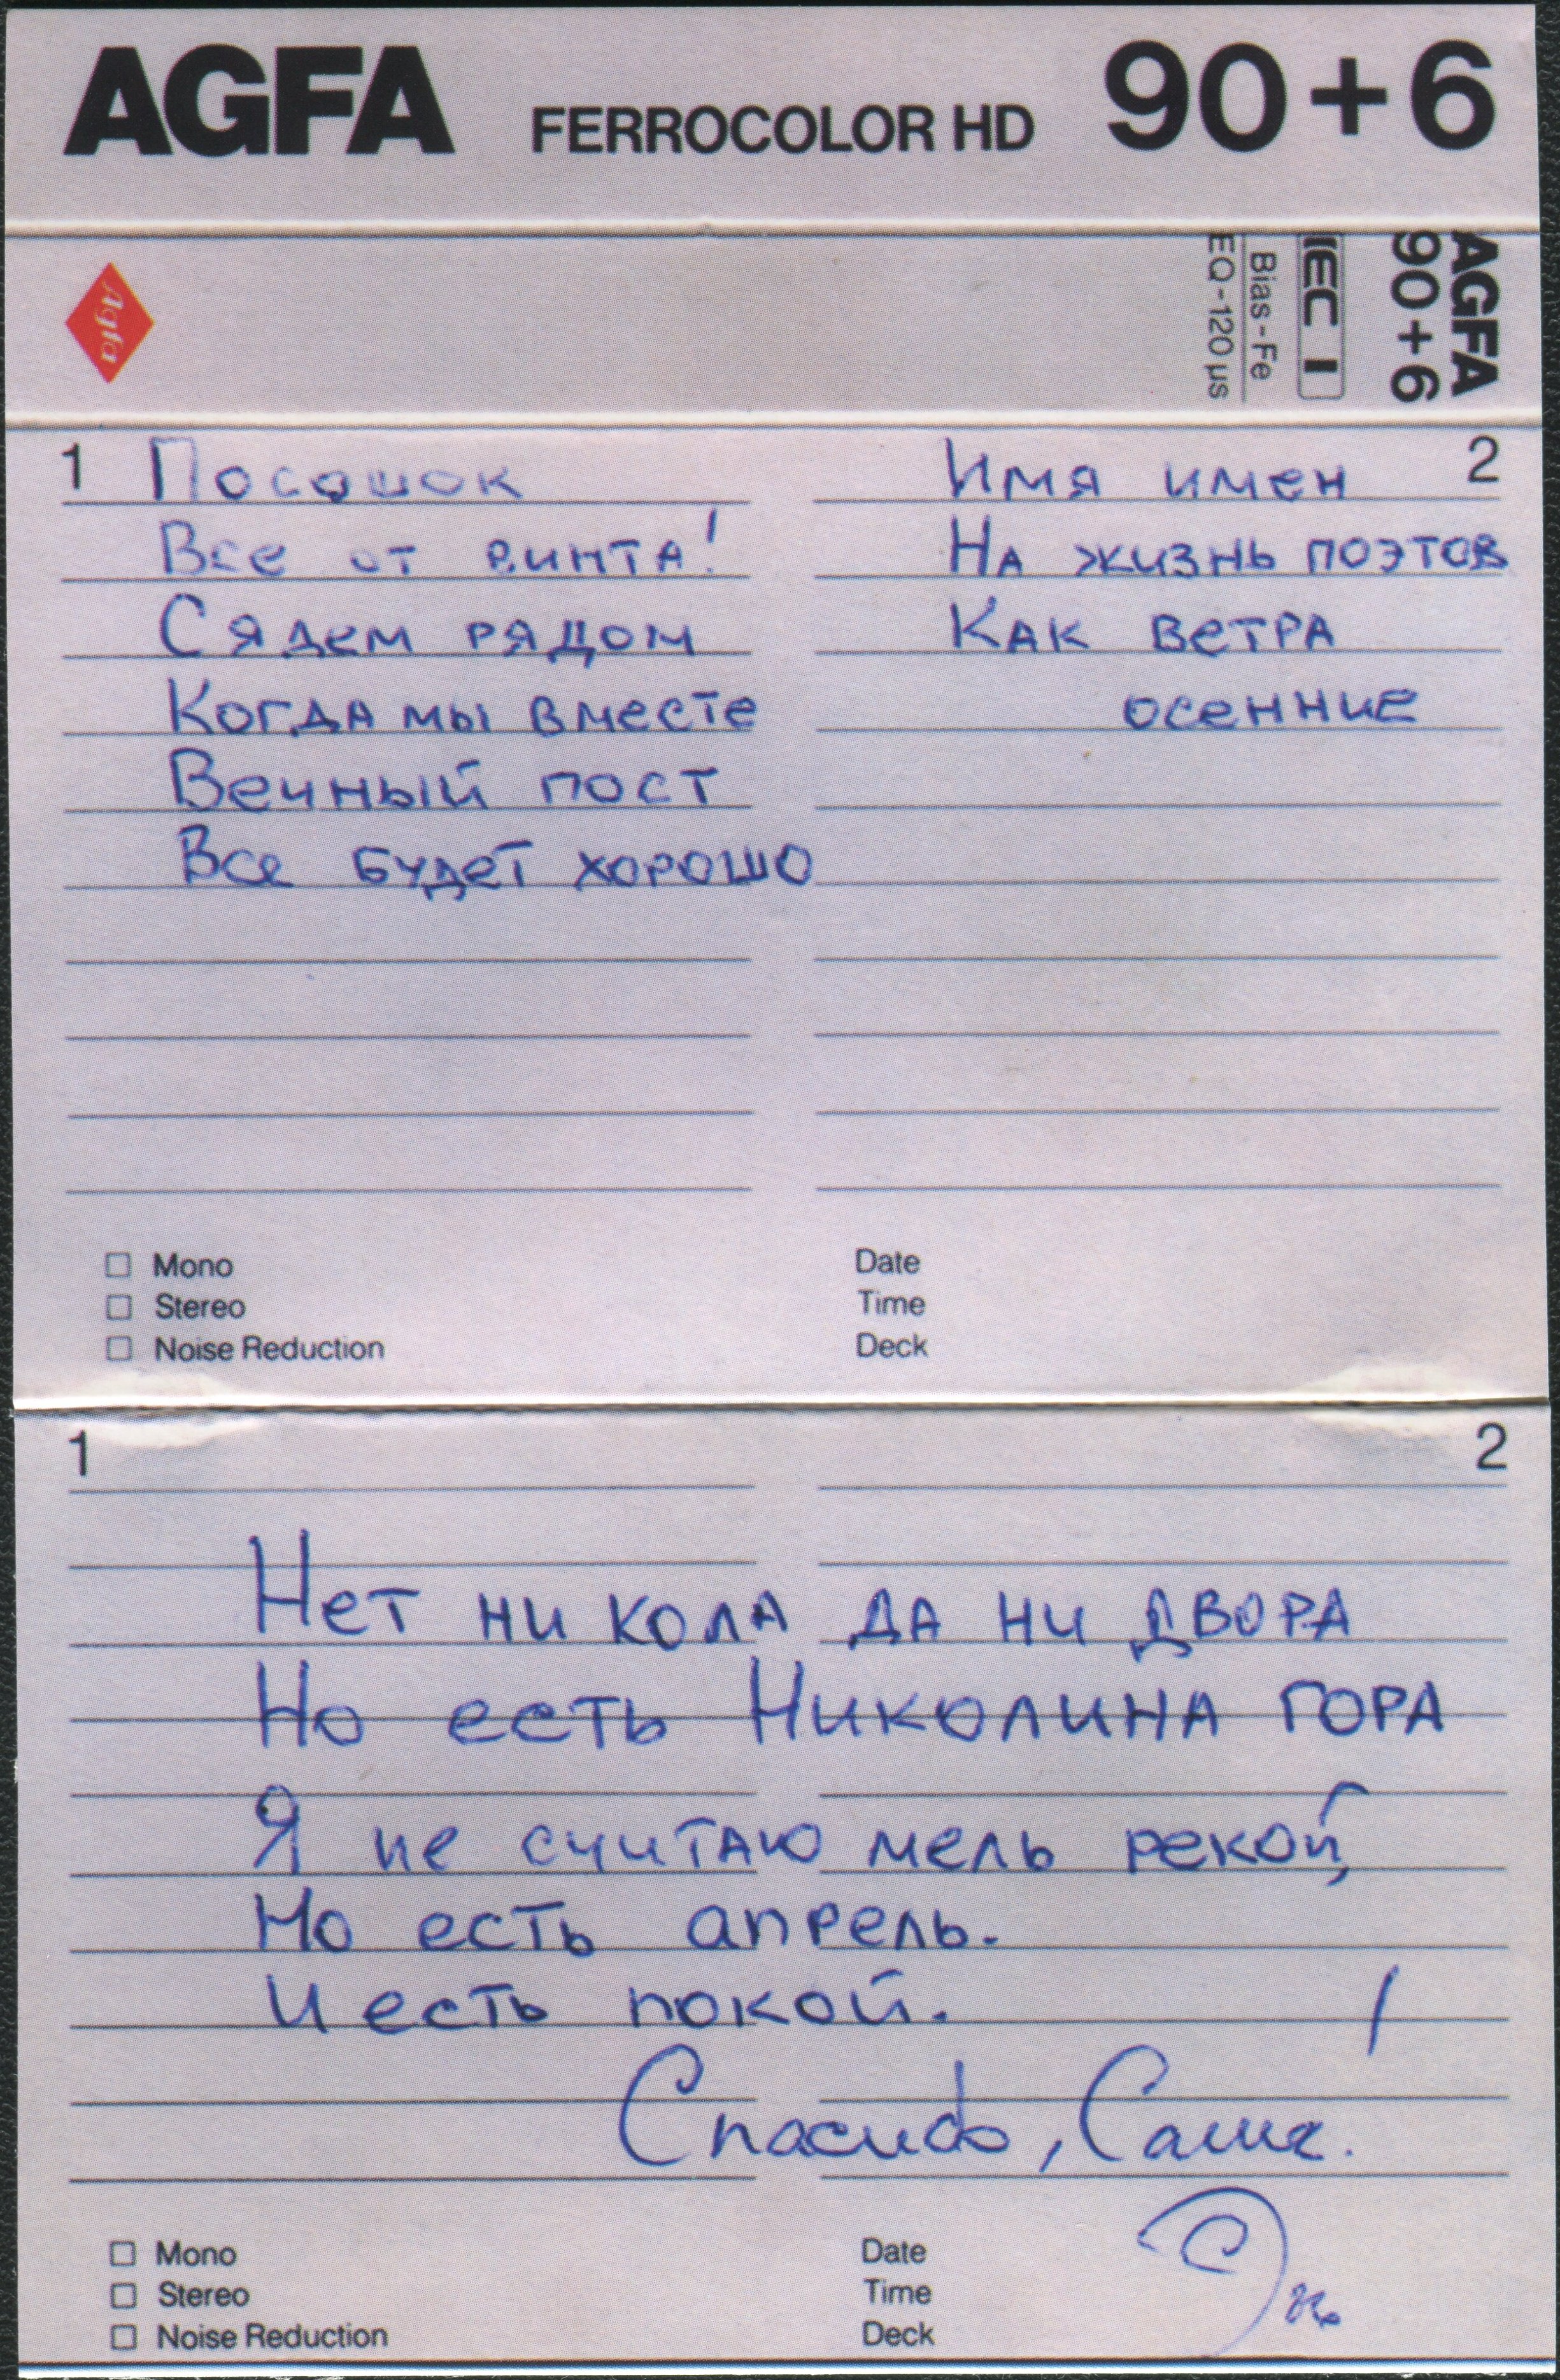 AGFA FERROCOLOR HD 90+6
Agfa
AGFA
90+6
IEC I
Bias-Fe
EQ-120µs
1
Посошок
Все от винта!
Сядем рядом
Когда мы вместе
Вечный пост
Все будет хорошо
2
Имя имен
На жизнь поэтов
Как ветра
осенние
Mono
Stereo
Noise Reduction
Date
Time
Deck
1 2
Нет ни кола да ни двора
Но есть Николина гора
Я не считаю мель рекой,
Но есть апрель.
И есть покой.
Спасибо, Саша!
Mono
Stereo
Noise Reduction
Date
Time
Deck